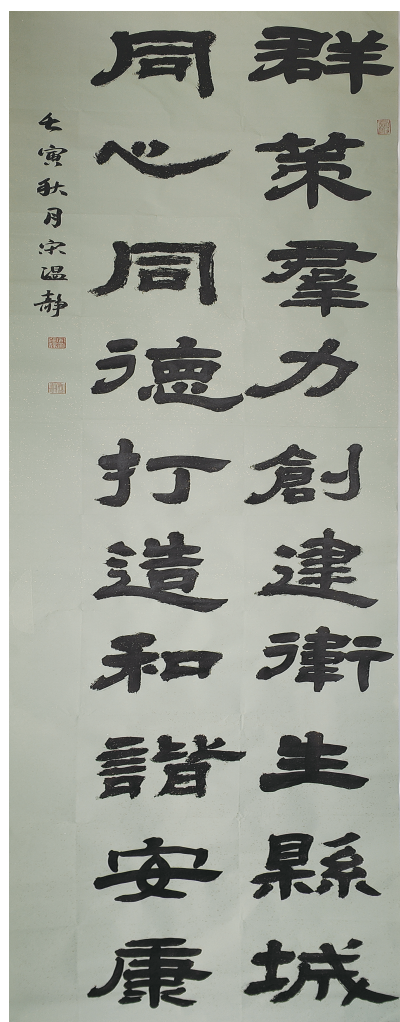 群策羣力創建衛生縣城
同心同德打造和諧安康
壬寅秋月宋温靜